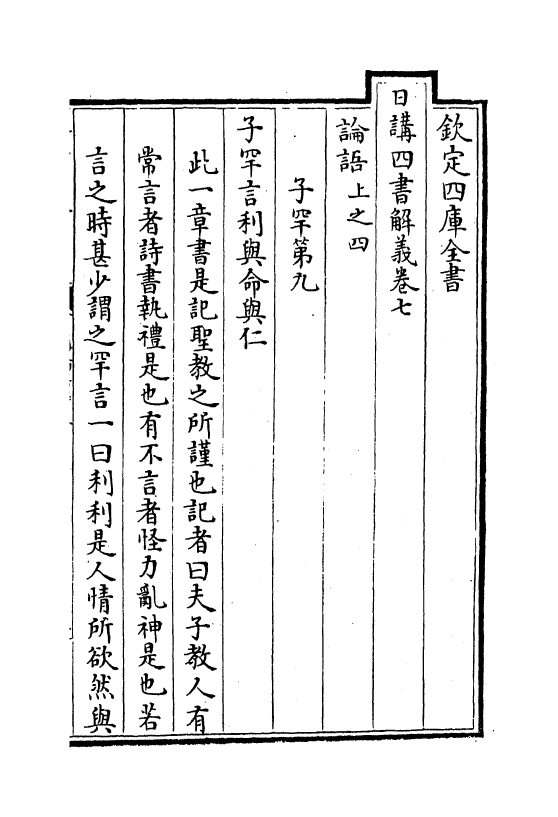 欽定四庫全書
日講四書解義卷七
論語上之四
子罕第九
子罕言利與命與仁
此一章書是記聖教之所謹也記者曰夫子教人有
常言者詩書執禮是也有不言者怪力亂神是也若
言之時甚少謂之罕言一曰利利是人情所欲然與